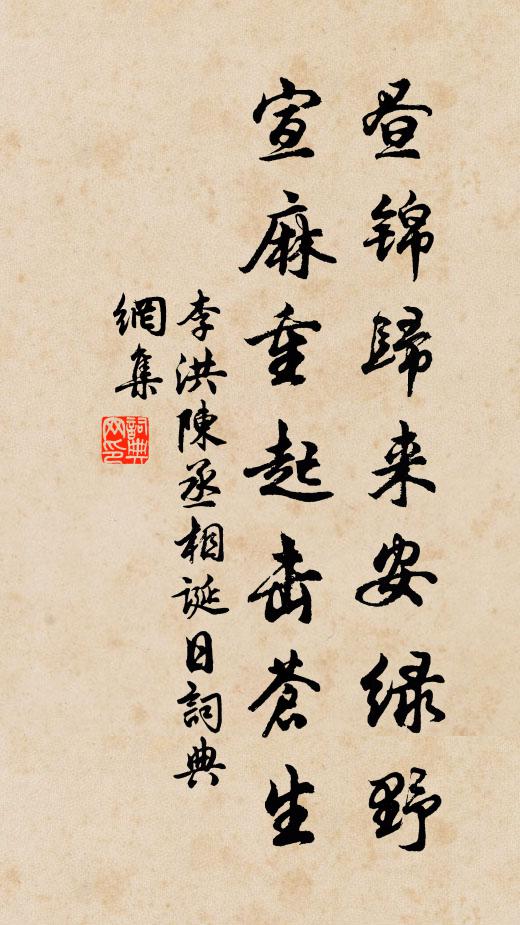 昼锦歸来安绿野
宣麻重起击蒼生
李洪陳丞相誕日詞典
網集
詞典
网印